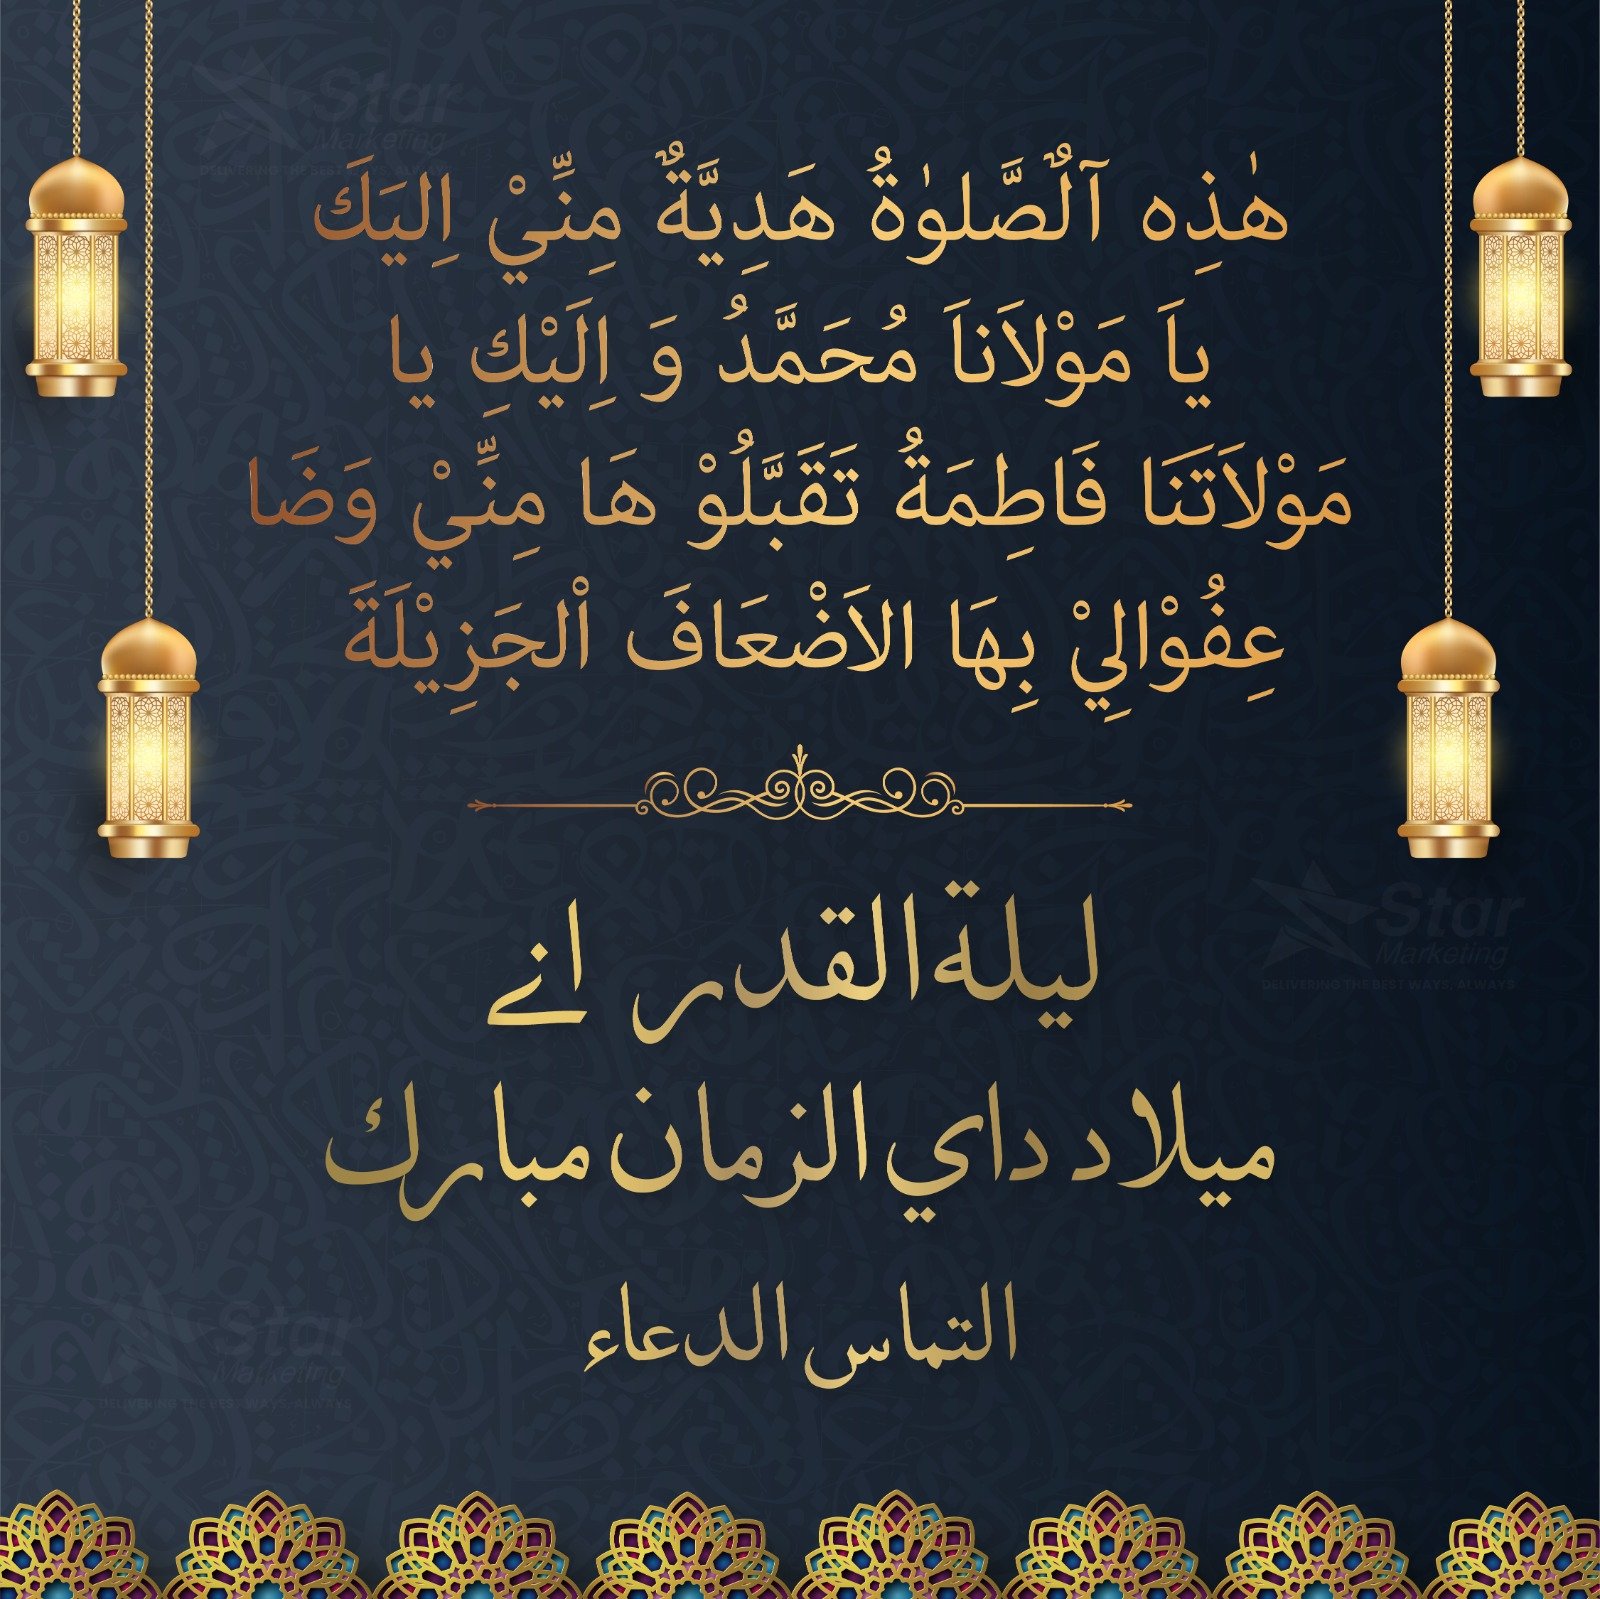 هٰذِه آلٌصَّلوٰةُ هَدِيَّةٌ مِنِّيْ اِليَكَ
ياَ مَوْلاَناَ مُحَمَّدُ وَ اِلَيْكِ يا
مَوْلاَتَنَا فَاطِمَةُ تَقَبَّلُوْ هَا مِنِّيْ وَضَا
عِفُوْالِيْ بِهَا الاَضْعَافَ اْلجَزِيْلَةَ
ليلة القدر انے
ميلاد داي الزمان مبارك
التماس الدعاء
Star
Marketing
DELIVERING THE BEST WAYS, ALWAYS
Star
Marketing
DELIVERING THE BEST WAYS, ALWAYS
Star
Marketing
DELIVERING THE BEST WAYS, ALWAYS